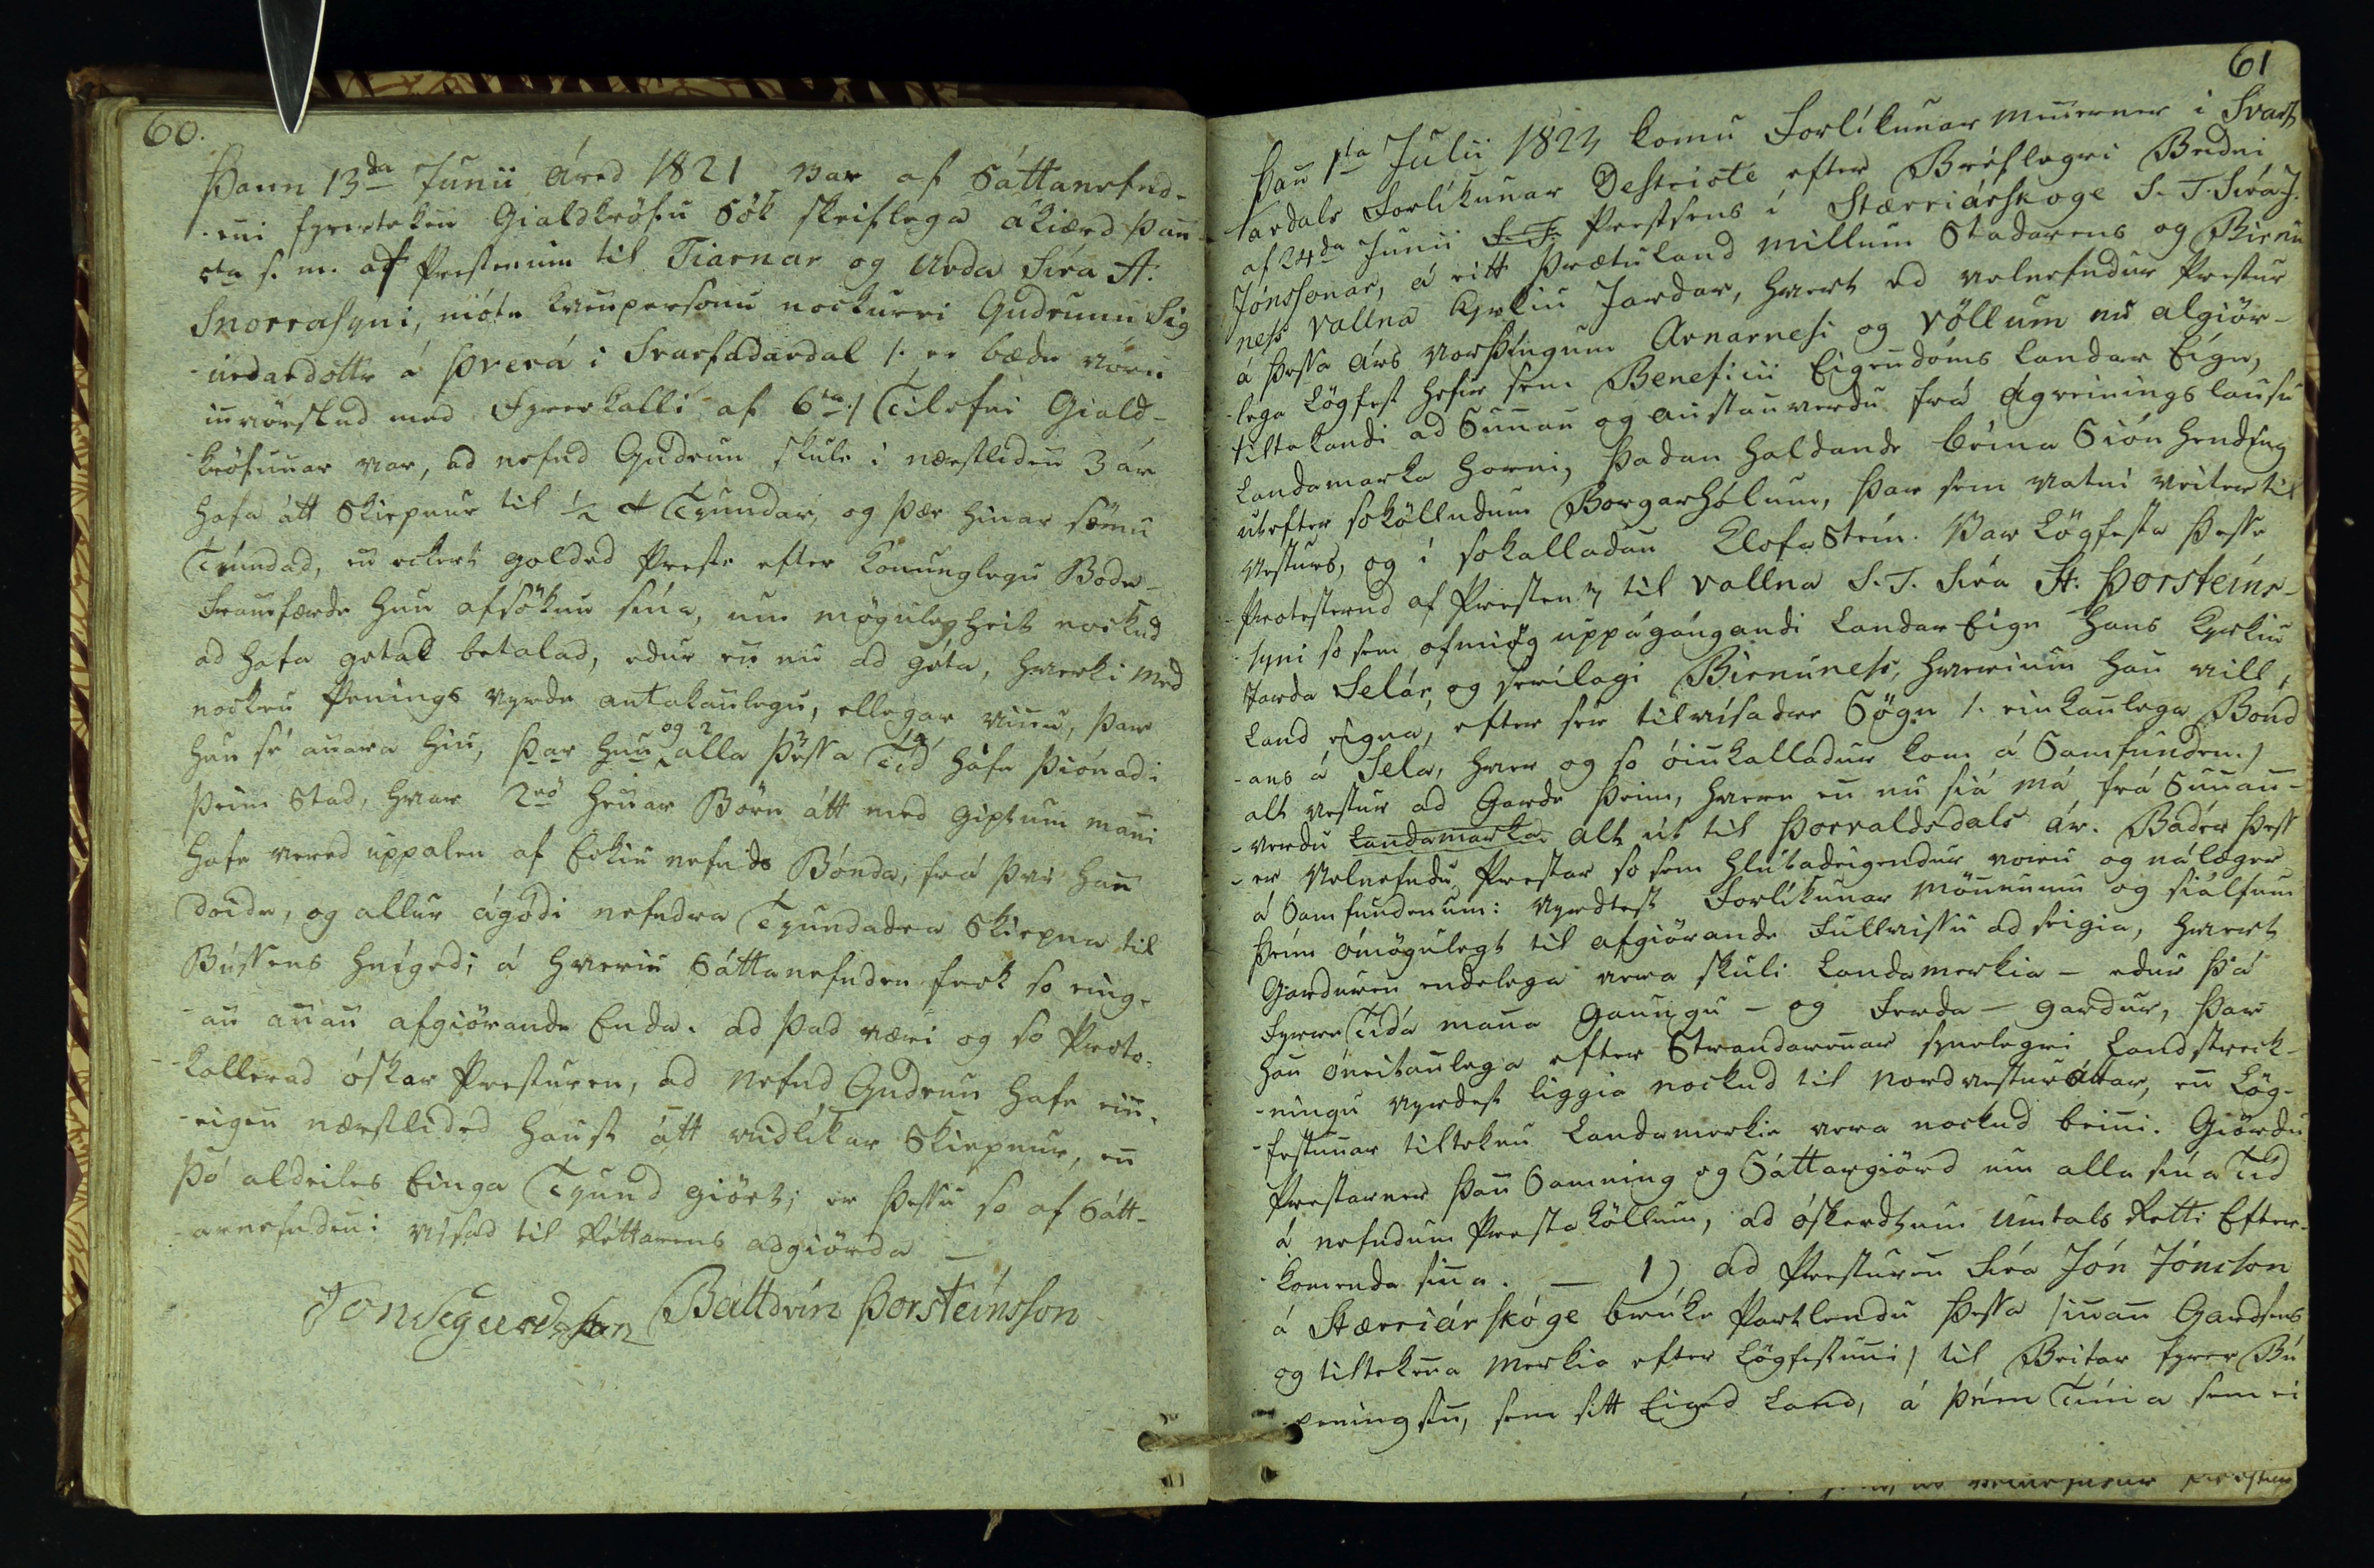 60.
Þann 13da Junii áred 1821 var af Sáttanefnd-
inni fyrertekin Gialdkröfu Sök skriflega ákiærd þann
s. m. af Prestinum til Tiarnar og Urda Síra A:
Snorrasyni, móte kvennpersonu nockurri Gudrunu Sig
urdardottr á Þverá i Svarfadardal /: er bædi vóru
innvörslud med Fyrerkalli af 6ta :/ Tilefni Giald-
kröfunnar var, ad nefnd Gudrun skule i næstliden 3 ár
hafa átt Skiepnur til 1/2 Tyundar, og þær hinar sömu
Tiundad, en eckert golded Preste efter Konunglegu Bode-
Framfærde hun afsökun sína, um mögulegheit nockud
ad hafa getad betalad, edur enn nu ad géta, hvorki med
nockru Penings virde antakanlegu, ellegar vinnu, þar
hun sé annara hiu, þar hun og alla þessa Tíd hafe þiónad i
þeim Stad, hvar 2ö hennar Börn átt med giptum manni
hafe vered uppalen af Eckiu nefnds Bónda, frá því hann
doide, og allur ágódi nefndra Tyundadra Skiepna til
Bússens hnígedi á hveriu Sáttanefnden feck so eing-
ann annan afgiörande Enda. ad þad væri og so Proto-
kollerad óskar Presturen, ad nefnd Gudrun hafe einn-
eigen næstlided Haust átt vidlikar Skiepnur, en
þó aldeiles Einga Tyund giört; er þessu so af Sátt-
arnefndinni vísad til Réttarens adgiörda —
Jon Sigurdsson Balldvin Þorsteinsson
61
Þann 1ta Julii 1823 komu Forlíkunar mennerner i Svarf
fardals Forlíkunar Destricte efter Bréflegri Beidni
af 24da Junii S. T. Prestsens i Stærriárskoge S. T. Síra J.
Jónssonar, á eitt Þrætuland millum Stadarens og Birnu
ness Vallna Kyrkiu Jardar, hvert ad velnefndur Prestur
á þessa árs vorþingum Arnarnesi og Völlum nu algiör-
lega Lögfest hefur sem Beneficii Eigendóms Landar Eign,
tiltakandi ad Sunnan og austanverdu frá ágreiningslausu
Landamarka Horni, þadan haldande beina Sión hending
utefter sokölludum Borgarhólum, þar sem vatni veiter til
Vesturs, og i sokalladan Klofa Stein. Var Lögfesta þesse
Protesterud af Prestinum til Vallna S. T. Síra St: Þorsteins-
syni so sem ofmiög uppágángandi Landar Eign hans Kyrkiu
Jarda Selár, og serilagi Birnuness, hverium hann vill,
Land eigna, efter ser tilvísadre Sögn /: einkanlega Bond
-ans á Sela, hver og so óinnkalladur kom á Samfunden :/
alt vestur ad Garde þeim, hvern enn nú siá má frá Sunnan-
-verdu Landamarka alt út til Þorvaldsdals ár. Báder þess
-er velnefndu Prestar so sem hlutadeigendur voru og nálæger
á Samfundenum: Virdtest Forlíkunar mönnunum og siálfum
þeim ómögulegt til afgiörande Fullvissu ad seigia, hvert
Gardurinn endelega vera skuli Landamerkia - edur þá
Fyrre Tída manna Gaungu - og Ferda - gardur, þar
hann óneitanlega efter Strandarennar synelegri Landstreck-
ningu virdest liggia nockud til nordvesturáttar, en Lög-
-festunnar tilteknu Landamerkie vera nockud beinni. Giördu
Prestarner þann Samning og Sáttargiörd um alla sína Tíd
á nefndum Prestaköllum, ad óskerdtum Umtals Retti Efter-
komenda sinna. — 1) ad Presturen Síra Jón Jónsson
á Stærriárskóge brúke Partlendu þessa /innan Gardsens
og tiltekna Merkia efter Lögfestunni/ til Beitar fyrer Bú
peningsinn, sem sitt Eiged Land, á þeim Tíma sem ei